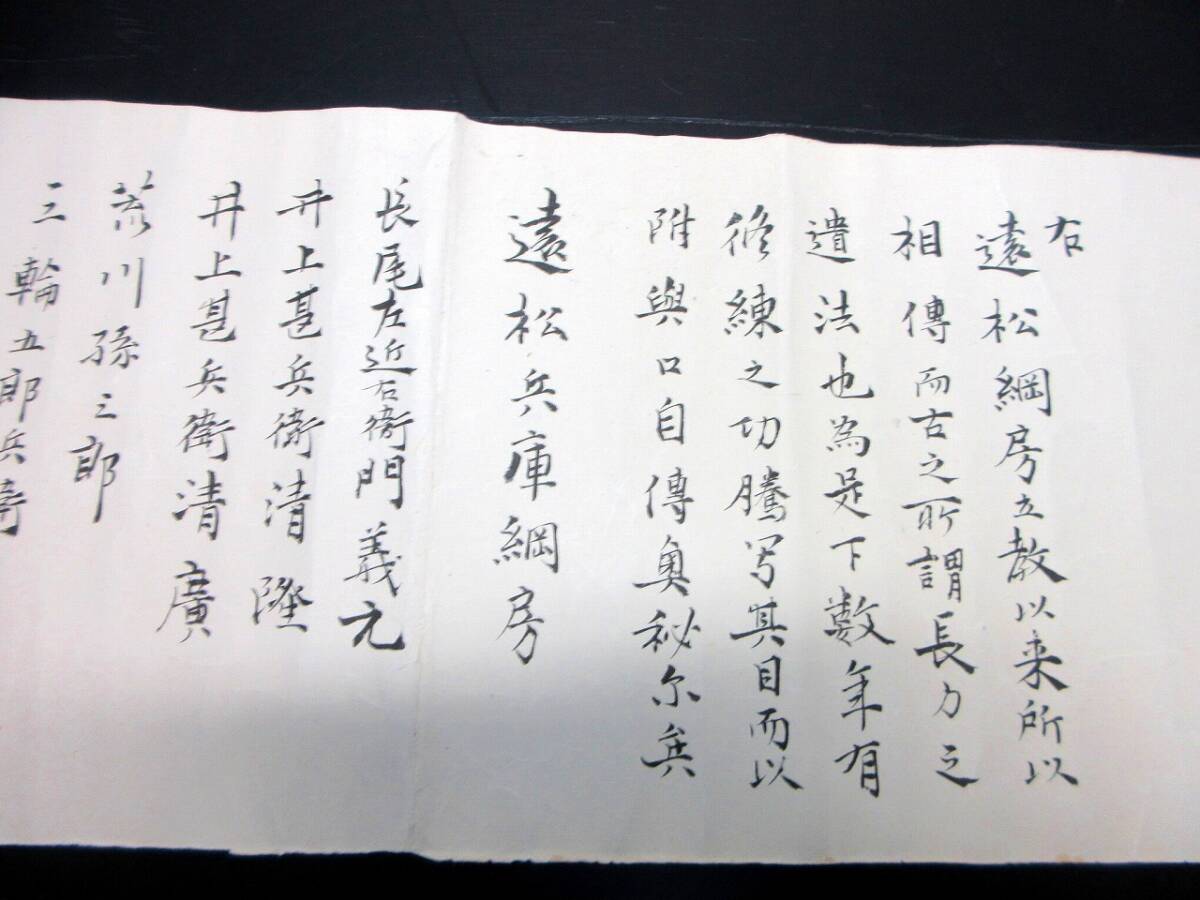 右
遠松綱房立教以来所以
相傳而古之所謂長刀之
遺法也為是下數年有
修練之功騰写其目而以
附與口自傳奥秘尓矣
遠松兵庫綱房
長尾左近右衛門義元
井上甚兵衛清隆
井上甚兵衛清廣
荒川孫三郎
三輪五郎兵衛